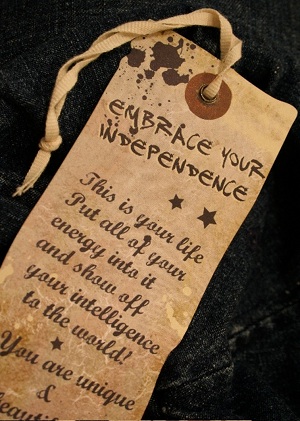 EMBRACE YOUR
INDEPENDENCE
This is your life
Put all of your
energy into it
and show off
your intelligence
to the world!
You are unique
&